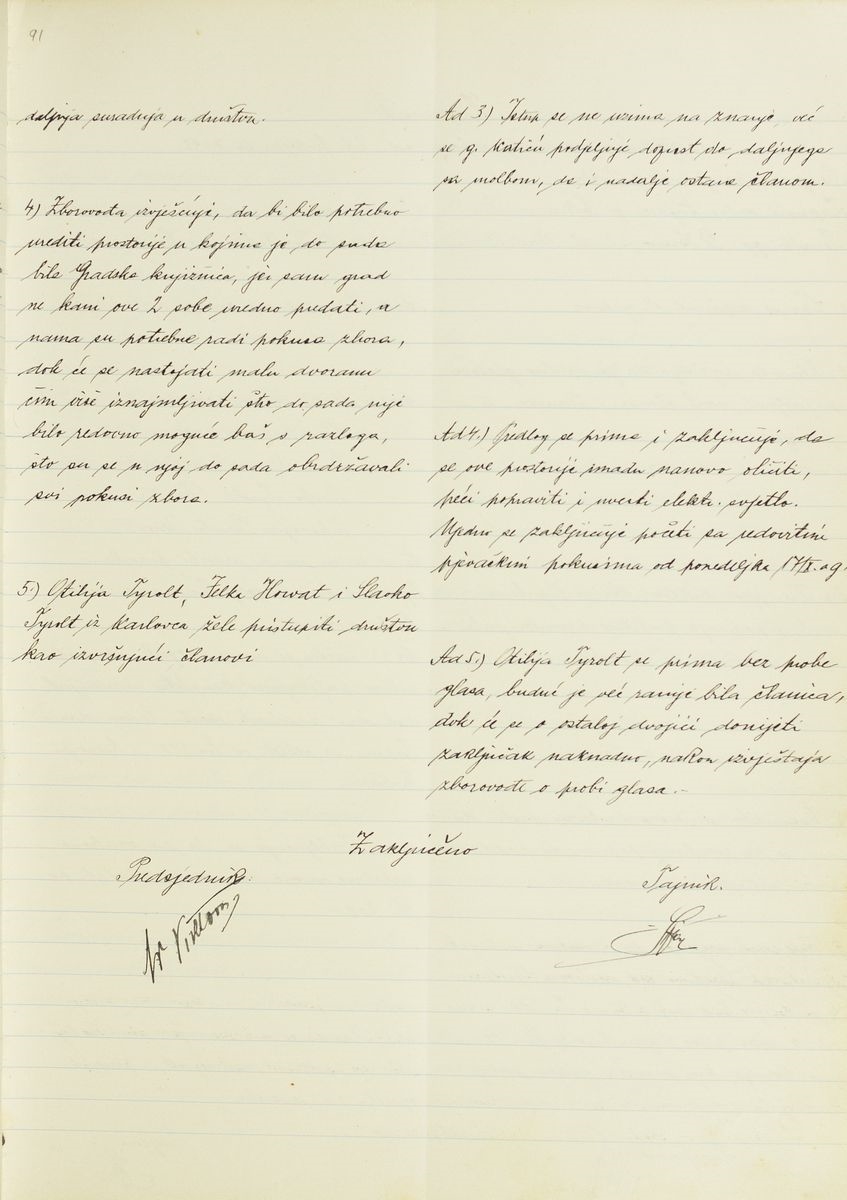 91
daljnja suradnja u društvu.
4) Zborovođa izvješćuje, da bi bilo potrebno
urediti prostorije u kojima je do sada
bila Gradska knjižnica, jer sam grad
ne kani ove 2 sobe uredno predati, a
nama su potrebne radi pokusa zbora,
dok će se nastojati malu dvoranu
čim više iznajmljivati što do sada nije
bilo redovno moguće baš s razloga,
što su se u njoj do sada obdržavali
svi pokusi zbora.
5.) Otilija Tyrolt, Jelka Horvat i Slavko
Tyrolt iz Karlovca žele pristupiti društvu
kao izvršujući članovi
Ad 3) Istup se ne uzima na znanje, već
se g. Katiću podjeljuje dopust do daljnjega
sa molbom, da i nadalje ostane članom.
Ad 4.) Predlog se prima i zaključuje, da
se ove prostorije imadu nanovo oličiti,
peći popraviti i uvesti elektr. svjetlo.
Ujedno se zaključuje početi sa redovitim
pjevačkim pokusima od ponedeljka 17/X. o.g.
Ad 5.) Otilija Tyrolt se prima bez probe
glasa, buduć je već ranije bila članica,
dok će se o ostaloj dvojici donijeti
zaključak naknadno, nakon izvještaja
zborovođe o probi glasa.-
Zaključeno
Predsjednik:
Tajnik.